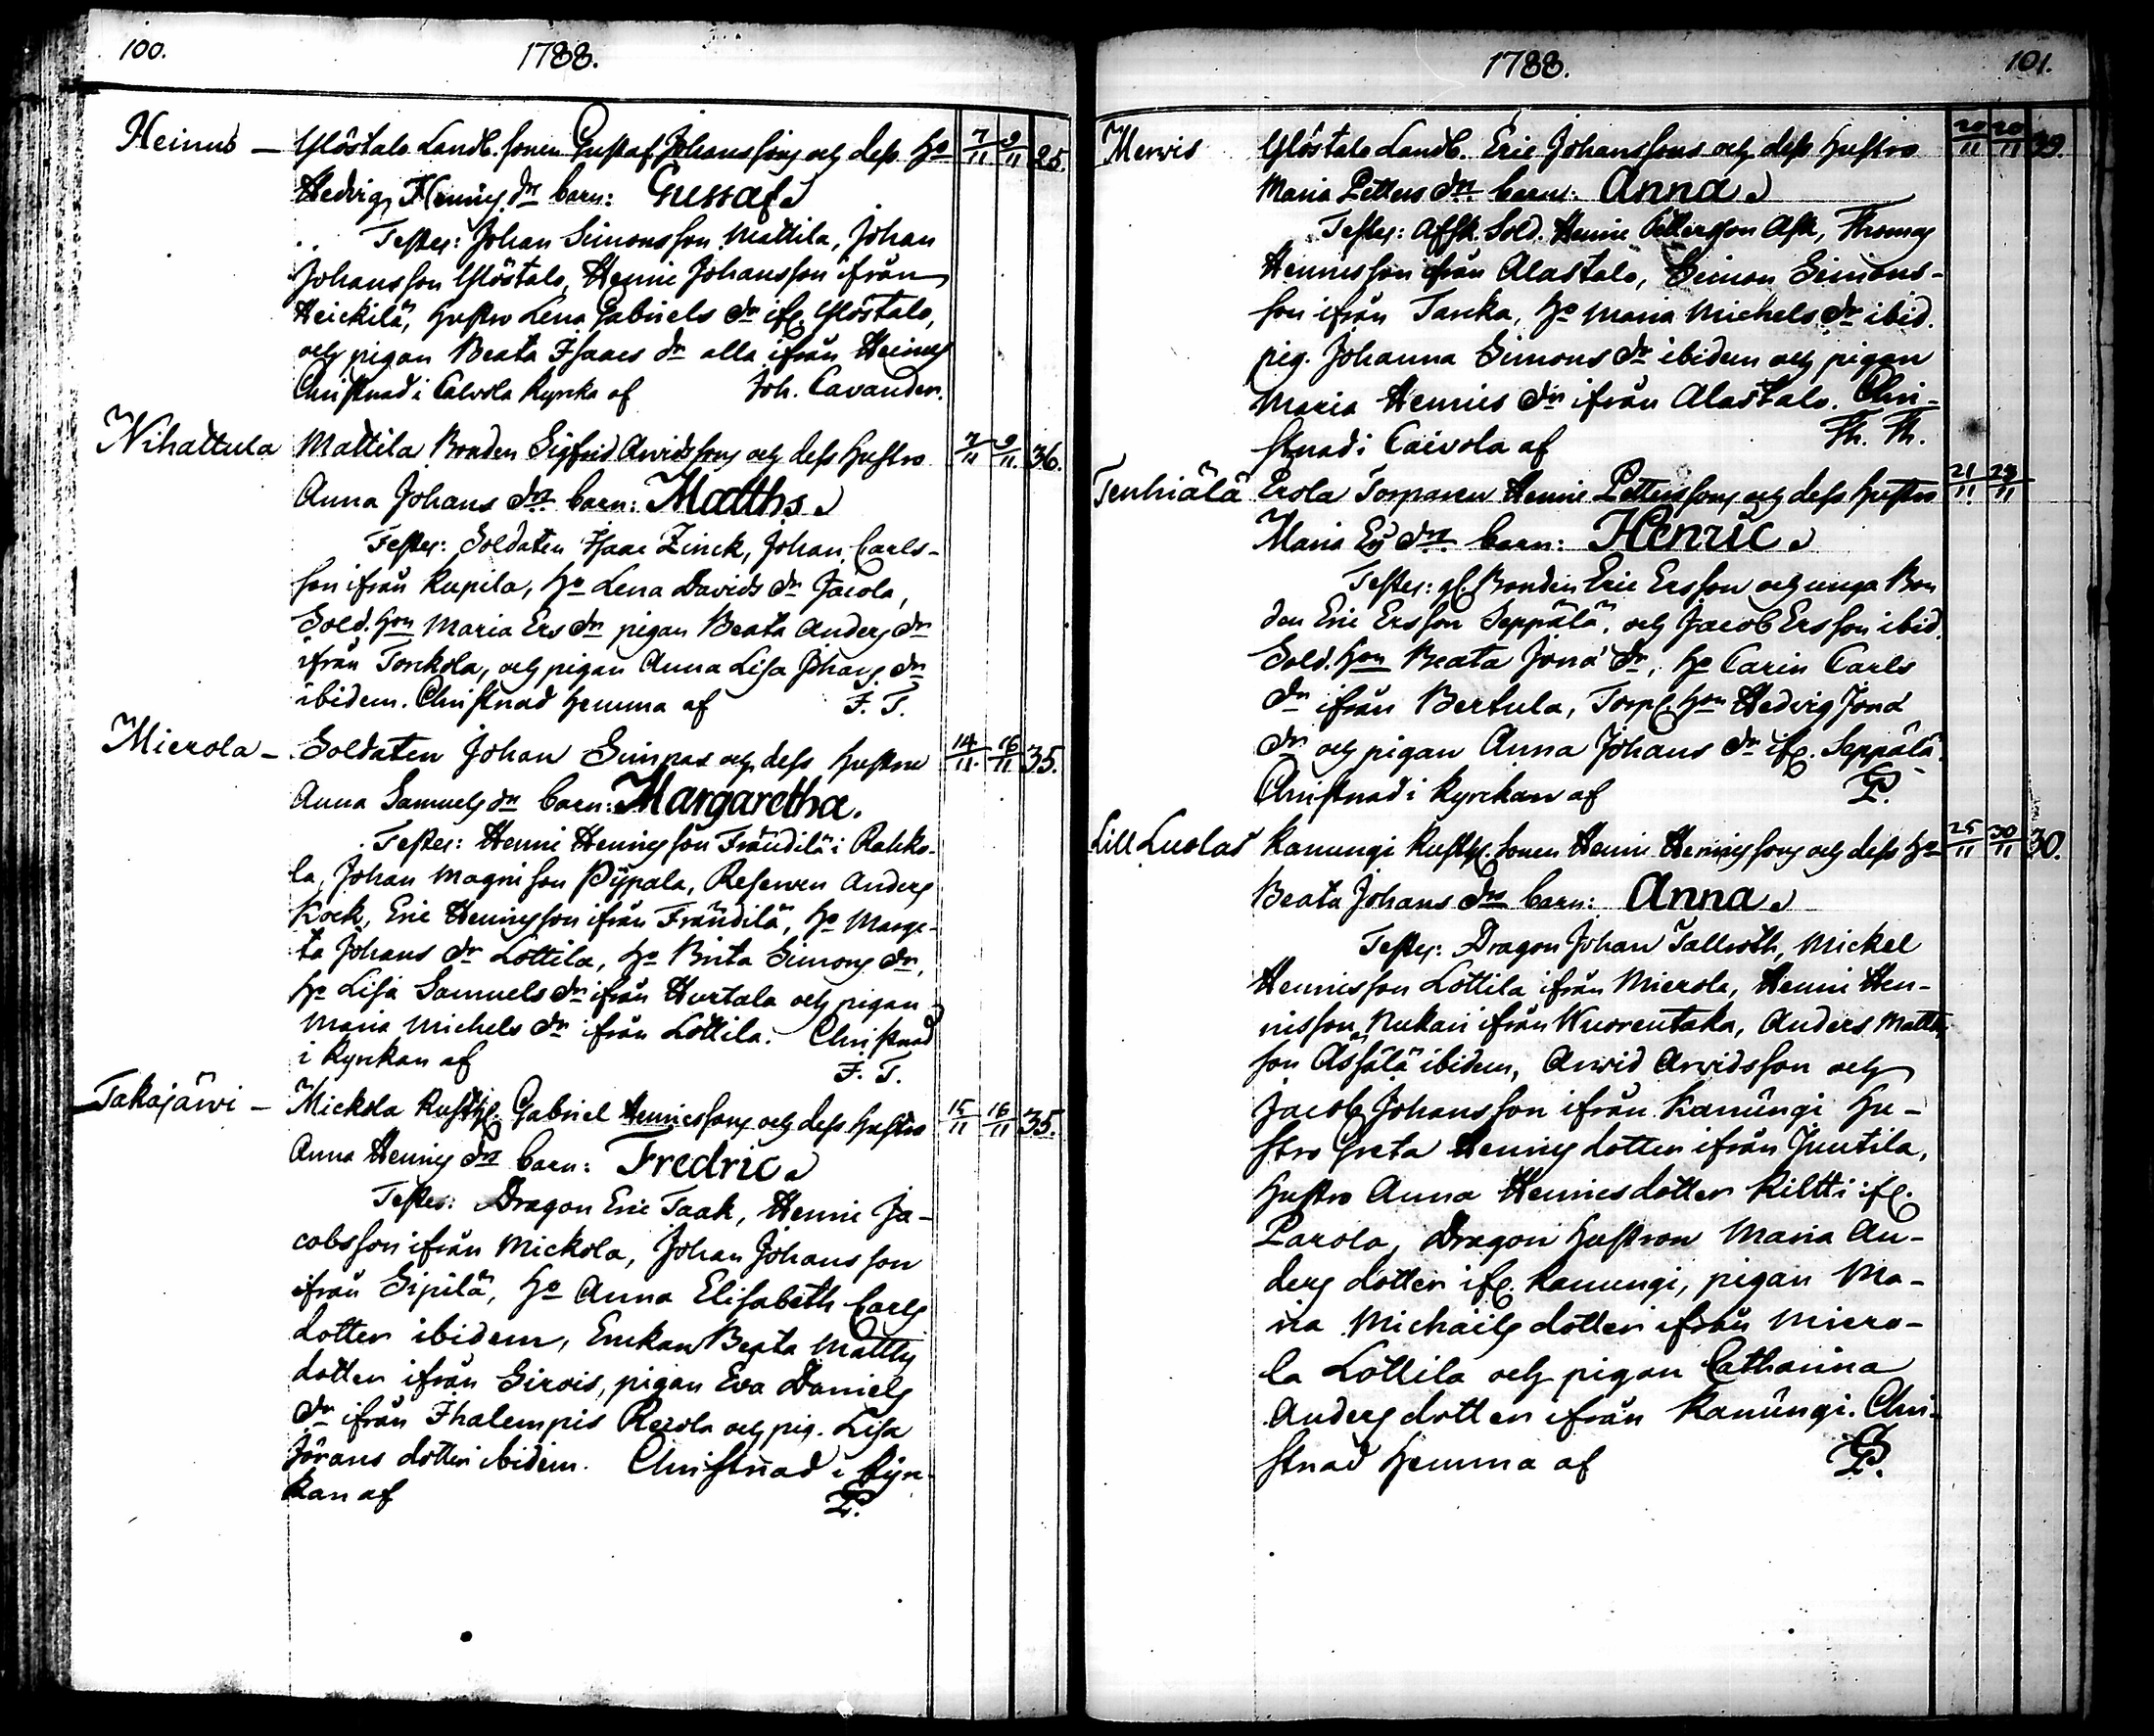 100.
1788.
Heinus — Ylöstalo Landb. sonen Gustaf Johanssons och dess Ho 7/11 9/11 25.
Hedvig Henrics dr barn: Gustaf
Testes: Johan Simonsson Mattila, Johan
Johansson Ylöstalo, Henric Johansson ifrån
Heickilä, hustro Lena Gabriels dr ifr. Ylöstalo,
och pigan Beata Isaacs dr alla ifrån Heinus
Christnad i Calvola Kyrka af Joh. Cavander.
Nihattula Mattila Bonden Sigfrid Arvidssons och dess hustro 7/11 9/11 36.
Anna Johans dr barn: Matths
Testes: Soldaten Isaac Zinck, Johan Carls-
son ifrån Kupila, Ho Lena Davids dr Jacola,
Sold. hon Maria Ers dr pigan Beata Anders dr
ifrån Tonkola, och pigan Anna Lisa Johans dr
ibidem. Christnad hemma af F. T.
Mierola — Soldaten Johan Simpas och dess hustro 14/11 16/11 35.
Anna Samuels dr barn: Margaretha.
Testes: Henric Henricsson Frändilä i Rahko-
la, Johan Magnisson Pÿpala, Reserven Anders
Kock, Eric Henricsson ifrån Frändilä, Ho Marge-
ta Johans dr Lottila, Ho Brita Simons dr,
Ho Lisa Samuels dr ifrån Hurtala och pigan
Maria Michels dr ifrån Lottila. Christnad
i Kyrckan af F. T.
Takajärvi — Mickola Rusth. Gabriel Henricssons och dess hustro 15/11 16/11 35.
Anna Henrics dr barn: Fredric
Testes: Dragon Eric Taak, Henric Ja-
cobsson ifrån Mickola, Johan Johansson
ifrån Sipilä, Ho Anna Elisabeth Carls
dotter ibidem, Enckan Beata Matths
dotter ifrån Sirois, pigan Eva Daniels
dr ifrån Ihalempis Rerola och pig. Lisa
Jörans dotter ibidem. Christnad i Kyr-
kan af P.
1788.
101.
Mervis Ylöstalo Landb. Eric Johanssons och dess hustro 20/11 20/11 29.
Maria Petters dr barn: Anna
Testes: Afsk. Sold. Henric Pettersson Ask, Thomas
Henricsson ifrån Alastalo, Simon Simons-
son ifrån Tanka, Ho Maria Michels dr ibid.
pig. Johanna Simons dr ibidem och pigan
Maria Henrics dr ifrån Alastalo. Chri-
stnad i Caivola af Th. Th.
Tenhiälä Erola Torparen Henric Petterssons och dess hustro 21/11 23/11
Maria Ers dr barn: Henric
Testes: gl. Bonden Eric Ersson och unga Bon
den Eric Ersson Seppälä, och Jacob Ersson ibid.
Sold. hon Beata Jona dr, Ho Carin Carls
dr ifrån Bertula, Torp. hon Hedvig Jona
dr och pigan Anna Johans dr ifr. Seppälä.
Christnad i Kyrckan af P.
Lill Luolas Kanungi Rusth. sonen Henric Henricssons och dess Ho 25/11 30/11 30.
Beata Johans dr barn: Anna
Testes: Dragon Johan Tallroth, Mickel
Henricsson Lottila ifrån Mierola, Henric Hen-
ricsson Nukari ifrån Wuorentaka, Anders Matths
son Assälä ibidem, Arvid Arvidsson och
Jacob Johansson ifrån Kanungi Hu-
stro Greta Henrics dotter ifrån Juutila,
hustro Anna Henricsdotter Kiltti ifr.
Parola, Dragon hustron Maria An-
ders dotter ifr. Kanungi, pigan Ma-
ria Michails dotter ifrån Miero-
la Lottila och pigan Catharina
Anders dotter ifrån Kanungi. Chri-
stnad hemma af P.